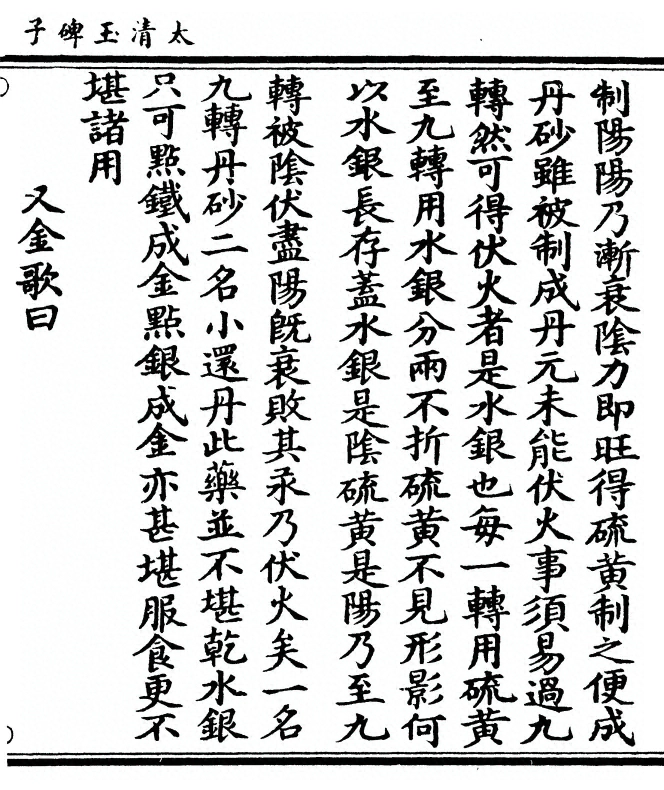 太清玉碑子
制陽陽乃漸衰陰力即旺得硫黃制之便成
丹砂雖被制成丹元未能伏火事須易過九
轉然可得伏火者是水銀也每一轉用硫黃
至九轉用水銀分兩不折硫黃不見形影何
以水銀長存蓋水銀是陰硫黃是陽乃至九
轉被陰伏盡陽旣衰敗其汞乃伏火矣一名
九轉丹砂二名小還丹此藥並不堪乾水銀
只可點鐵成金點銀成金亦甚堪服食更不
堪諸用
又金歌曰